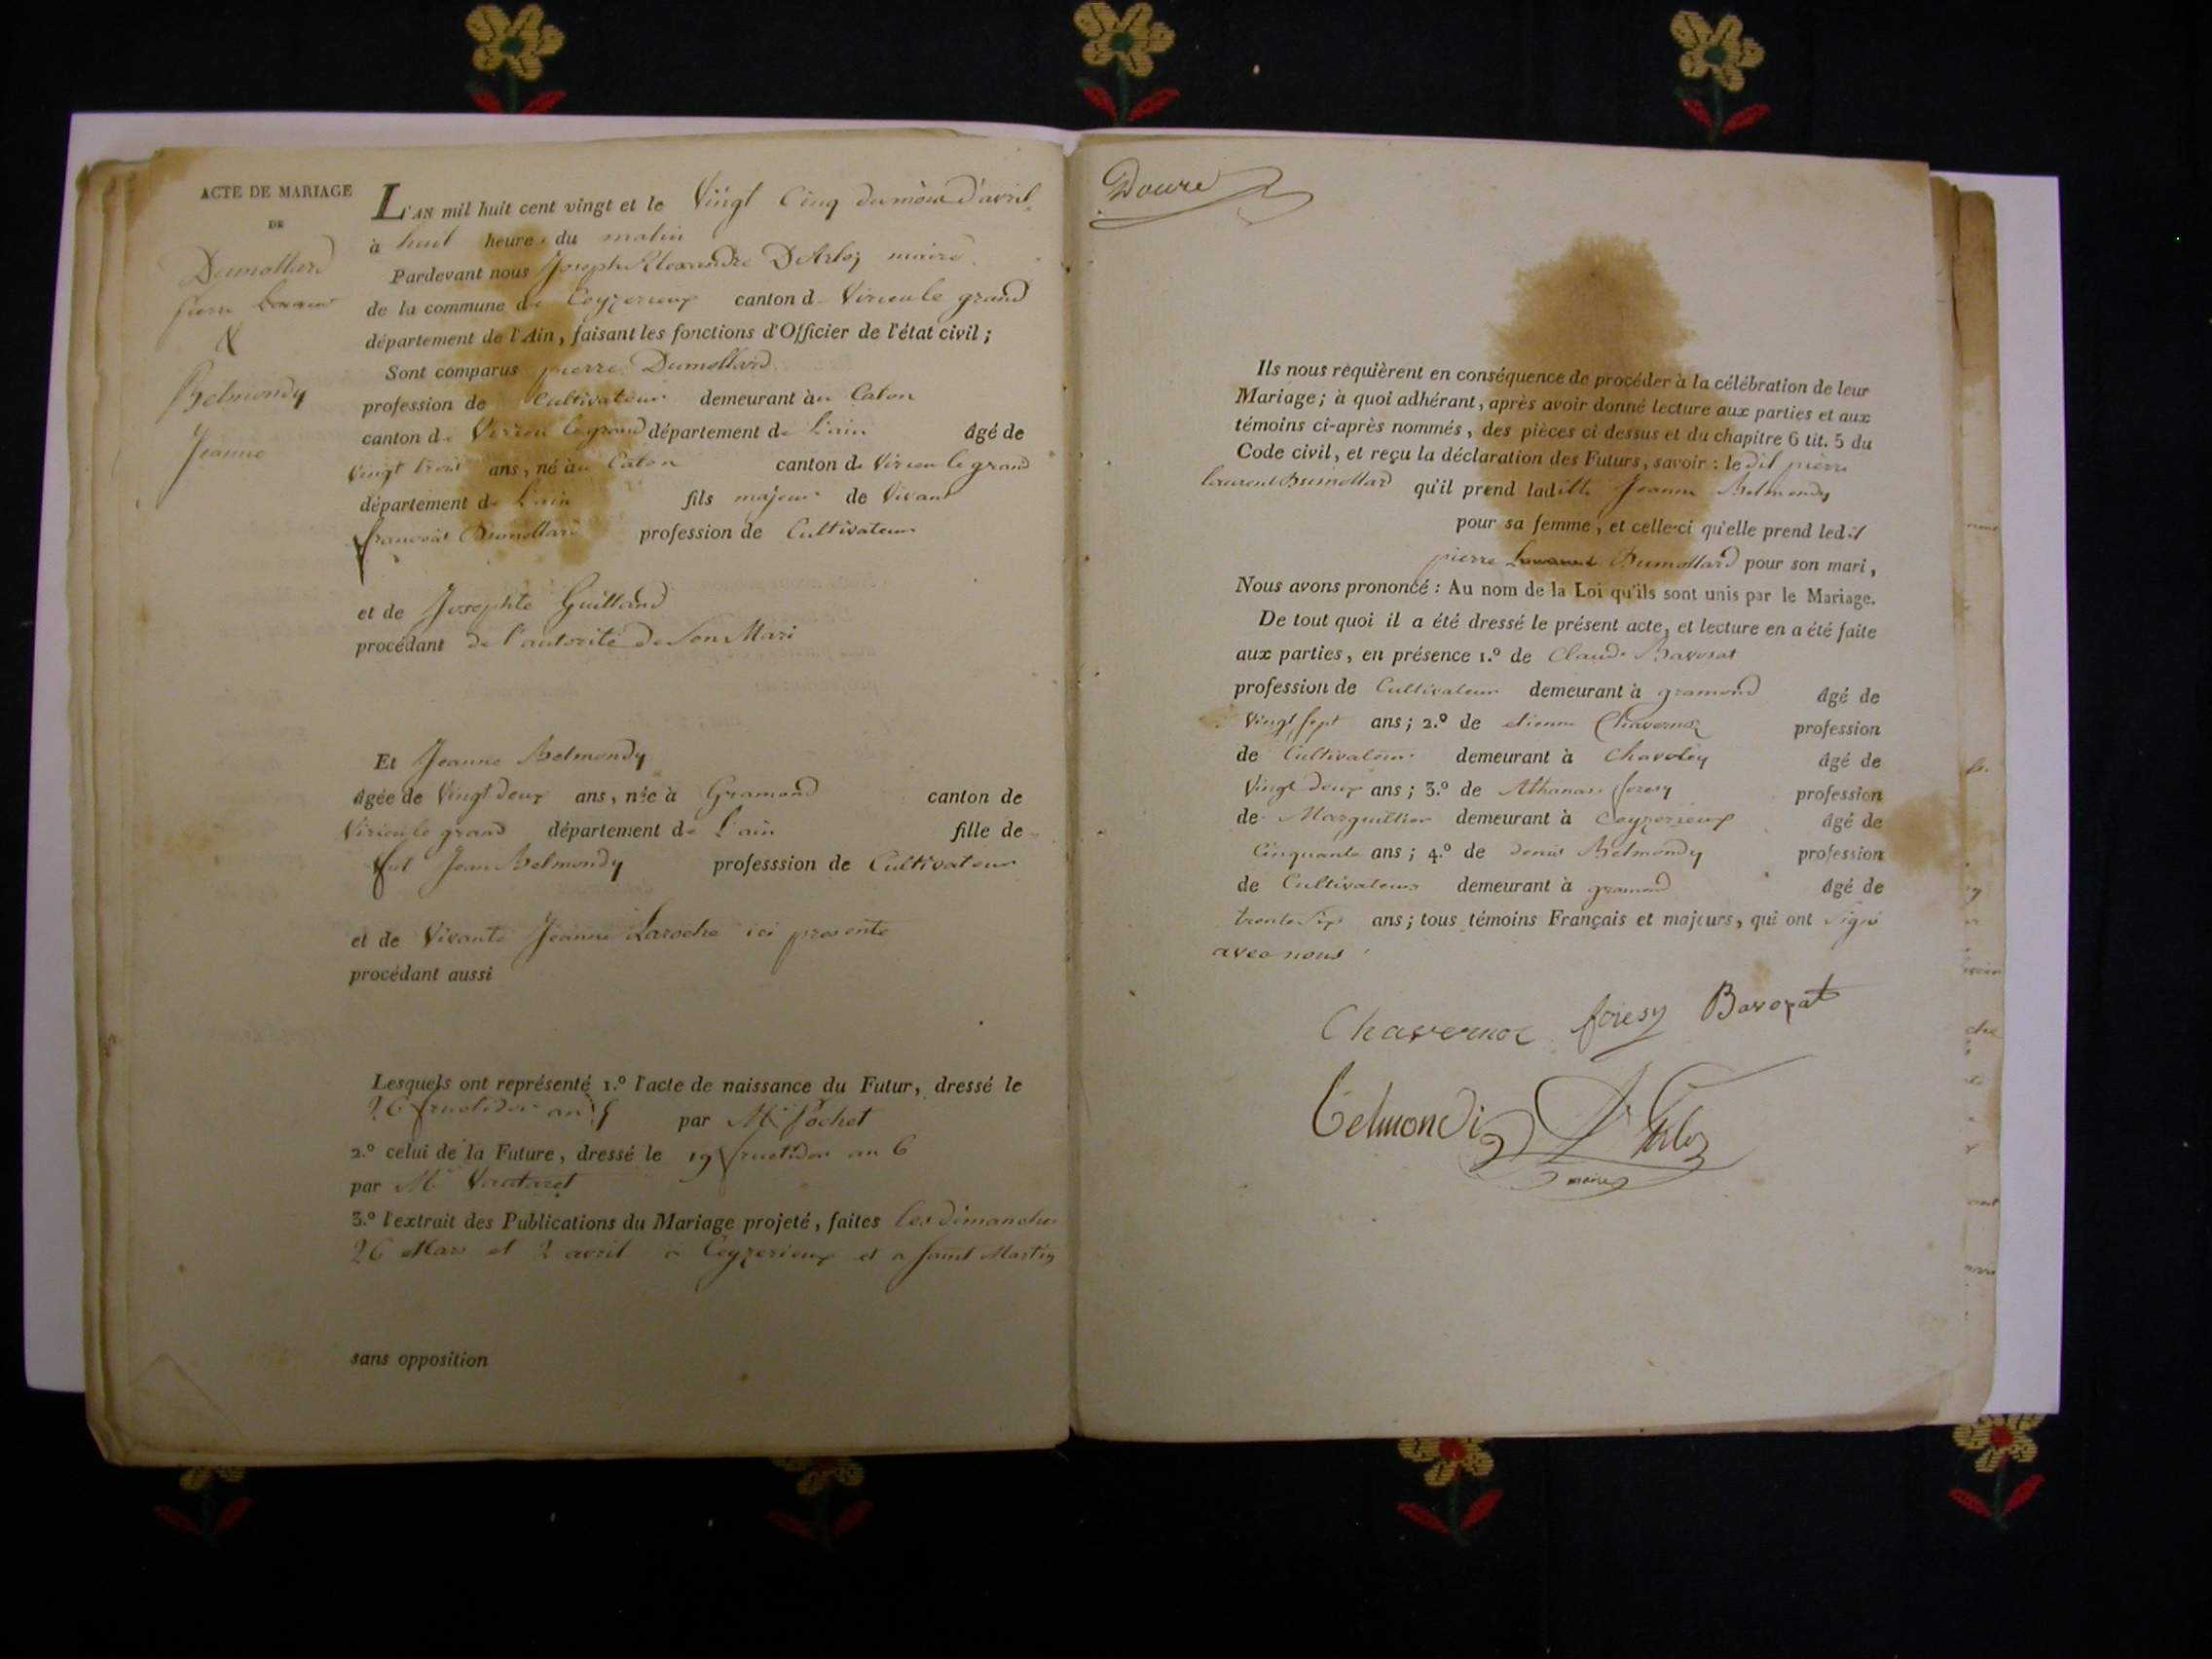 ACTE DE MARIAGE
DE
Dumollard
pierre Laurent
&
Belmondy
Jeanne
L'AN mil huit cent vingt et le Vingt Cinq du mois d'avril
à huit heures du matin
Pardevant nous Joseph Alexandre D'Arloz maire
de la commune de Ceyzerieux canton de Virieu le grand
département de l'Ain, faisant les fonctions d'Officier de l'état civil;
Sont comparus pierre Dumollard
profession de Cultivateur demeurant au Caton
canton de Virieu le grand département de L'ain âgé de
Vingt trois ans, né au Caton canton de Virieu le grand
département de L'ain fils majeur de Vivant
francois Dumollard profession de Cultivateur
et de Josephte Guilland
procédant de l'autorité de Son Mari
Et Jeanne Belmondy
âgée de Vingt deux ans, née à Gramond canton de
Virieu le grand département de L'ain fille de
fut Jean Belmondy professsion de Cultivateur
et de Vivante Jeanne Laroche ici presente
procédant aussi
Lesquels ont représenté 1.º l'acte de naissance du Futur, dressé le
26 fructidor an 5 par Mr Pochet
2.º celui de la Future, dressé le 19 fructidor an 6
par Mr
3.º l'extrait des Publications du Mariage projeté, faites les dimanches
26 Mars et 2 avril a Ceyzerieux et a Saint Martin
sans opposition
Ils nous requièrent en conséquence de procéder à la célébration de leur
Mariage; à quoi adhérant, après avoir donné lecture aux parties et aux
témoins ci-après nommés, des pièces ci dessus et du chapitre 6 tit. 5 du
Code civil, et reçu la déclaration des Futurs, savoir: le dit pierre
laurent Dumollard qu'il prend laditte Jeanne Belmondy
pour sa femme, et celle-ci qu'elle prend ledit
pierre Laurent Dumollard pour son mari,
Nous avons prononcé: Au nom de la Loi qu'ils sont unis par le Mariage.
De tout quoi il a été dressé le présent acte, et lecture en a été faite
aux parties, en présence 1.º de Claude Bavosat
profession de Cultivateur demeurant à gramond âgé de
Vingt sept ans; 2.º de etienne Chavernoz profession
de Cultivateur demeurant à Chavoley âgé de
Vingt deux ans; 3.º de Athanase foresy profession
de Marguillier demeurant à Ceyzerieux âgé de
Cinquante ans; 4.º de denis Belmondy profession
de Cultivateur demeurant à gramond âgé de
trente Six ans; tous témoins Français et majeurs, qui ont Signé
avec nous
Chavernoz foresy Bavozat
Belmondi D'Arloz
maire